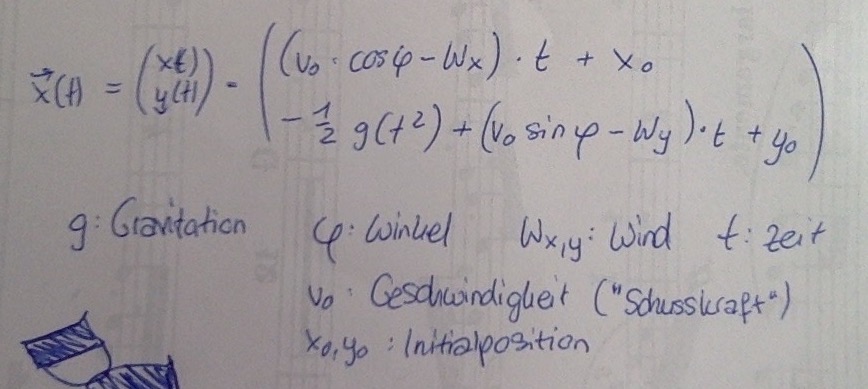 x⃗(t) = (x(t) y(t)) = ((v₀ · cosφ - Wx) · t + x₀
-½ g(t²) + (v₀ sinφ - Wy) · t + y₀)
g: Gravitation φ: Winkel Wx,y: Wind t: Zeit
v₀: Geschwindigkeit ("Schusskraft")
x₀,y₀: Initialposition